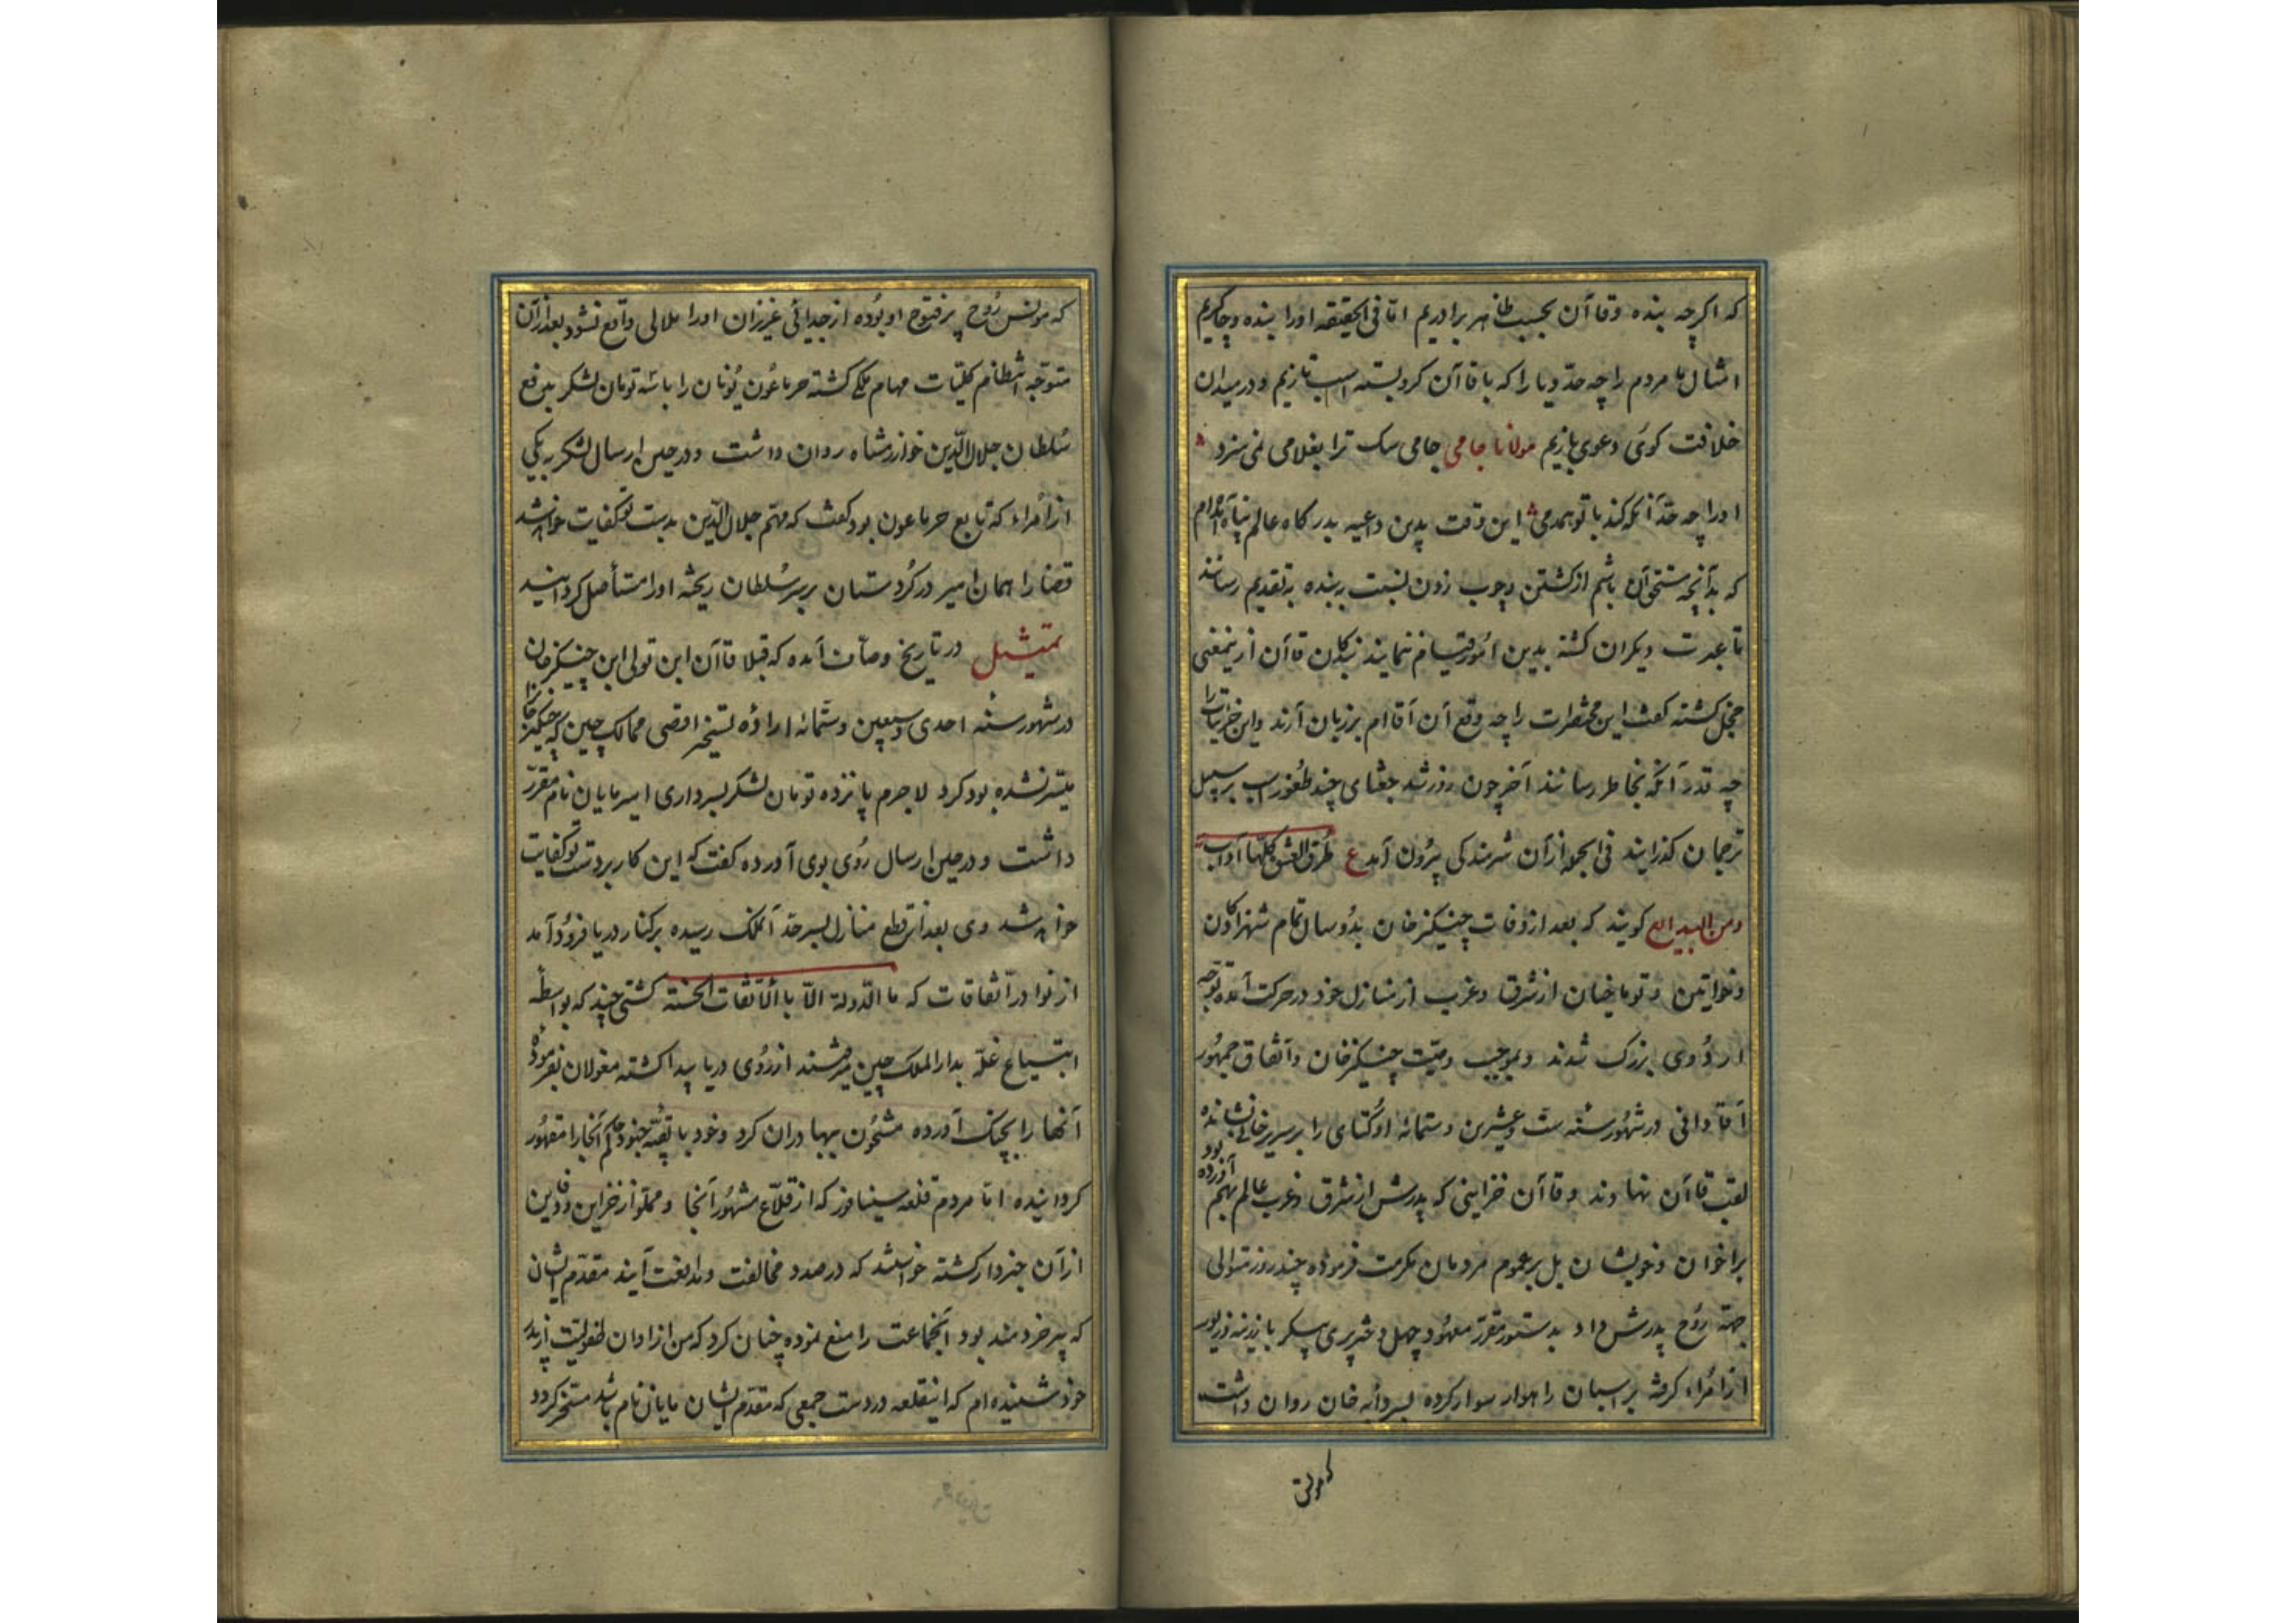 که اکرچه بنده وقاآن بحسب ظاهر برادریم امّا فی الحقیقه اورا بنده وچاکریم
امثال ما مردم را چه حدّ ویارا که با قاآن کرو بسته اسب تازیم ودر میدان
خلافت کوی دعوی بازیم مولانا جامی جامی سک ترا بغلامی نمی سزد
اورا چه حدّ آنکه کند با تو همدمی این وقت بدین داعیه بدرکاه عالم پناه آمده‌ام
که بدآنچه مستحقّ آن باشم ازکشتن وچوب زدن نسبت ببنده بتقدیم رسانند
تا عبرت دیکران کشته بدین امور قیام ننمایند بندکان قاآن ازینمعنی
خجل کشته کفت این محقّرات را چه وقع آن آقاام برزبان آرند واین جزئیات را
چه قدر آنکه بخاطر رسانند آخر چون روز شد جغتای چند طغوز اسب برسبیل
ترجمان کذرانید فی الجمله ازآن شرمندکی بیرون آمد ع طرق العشق کلّها آداب
ومن البدایع کویند که بعد ازوفات چنکیزخان بدو سال تمام شهزادکان
وخواتین وتوماخیان ازشرق وغرب ازمنازل خود درحرکت آمده توجّه
اردوی بزرک شدند وبموجب وصیّت چنکیزخان واتّفاق جمهور
آقا وانی درشهور سنه ستّ وعشرین وستمائه اوکتای را برسریر خانی نشانده
لقب قاآن نهادند وقاآن خزاینی که پدرش ازشرق وغرب عالم بهم آورده بود
براخوان وخویشان بل برعموم مردمان مکرمت فرموده چند روز متوالی
جهة روح پدرش داد بدستور مقرّر معهود چهل دختر پری پیکر با زینه وزیور
ازامراء کرفته براسبان راهوار سوار کرده بسردابه خان روان داشت
که مونس
که مونس روح پرفتوح او بوده ازجدائی عزیزان اورا ملالی واقع نشود بعدازآن
متوجّه انتظام کلیّات مهام ملکی کشته جرماغون نویان را باسه تومان لشکر بدفع
سلطان جلال الدّین خوارزمشاه روان داشت ودرحین ارسال لشکر بیکی
ازامراء که تابع جرماغون بود کفت که مهمّ جلال الدّین بدست تو کفایت خواهد شد
قضارا همان امیر درکردستان برسر سلطان ریخته اورا مستأصل کردانید
تمثیل در تاریخ وصاف آمده که قبلا قاآن ابن تولی ابن چنیکزخان
درشهور سنه احدی وسبعین وستمائه ارادهٔ تسخیر اقصی ممالک چین که چنیکزخانرا
میّسر نشده بود کرد لاجرم پانزده تومان لشکر بسرداری امیر مایان نام مقرّر
داشت ودرحین ارسال روی بوی آورده کفت که این کار بردست تو کفایت
خواهد شد وی بعد ازقطع منازل بسرحدّ آنملک رسیده برکنار دریا فرود آمد
از نوادر اتّفاقات که ما الدّولة الّا بالاتّفاقات الحسنة کشتی چند که بواسطهٔ
ابتیاع غلّه بدارالملک چین میرفتند ازروی دریا پیدا کشته مغولان بفرموده
آنها را بچنک آورده مشحون ببهادران کرد وخود با بقیّه جنود حاکم آنجارا مقهور
کردانیده امّا مردم قلعه سینافور که از قلاع مشهور آنجا ومملوّ ازخزاین ودفاین
ازآن خبردار کشته خواستند که درصدد مخالفت ومدافعت آیند مقدّم ایشان
که پیر خردمند بود آنجماعت را منع نموده چنان کرد که من ازاوان طفولیّت ازپدر
خود شنیده ام که اینقلعه دردست جمعی که مقدّم ایشان مایان نام باشد مسخّر کردد